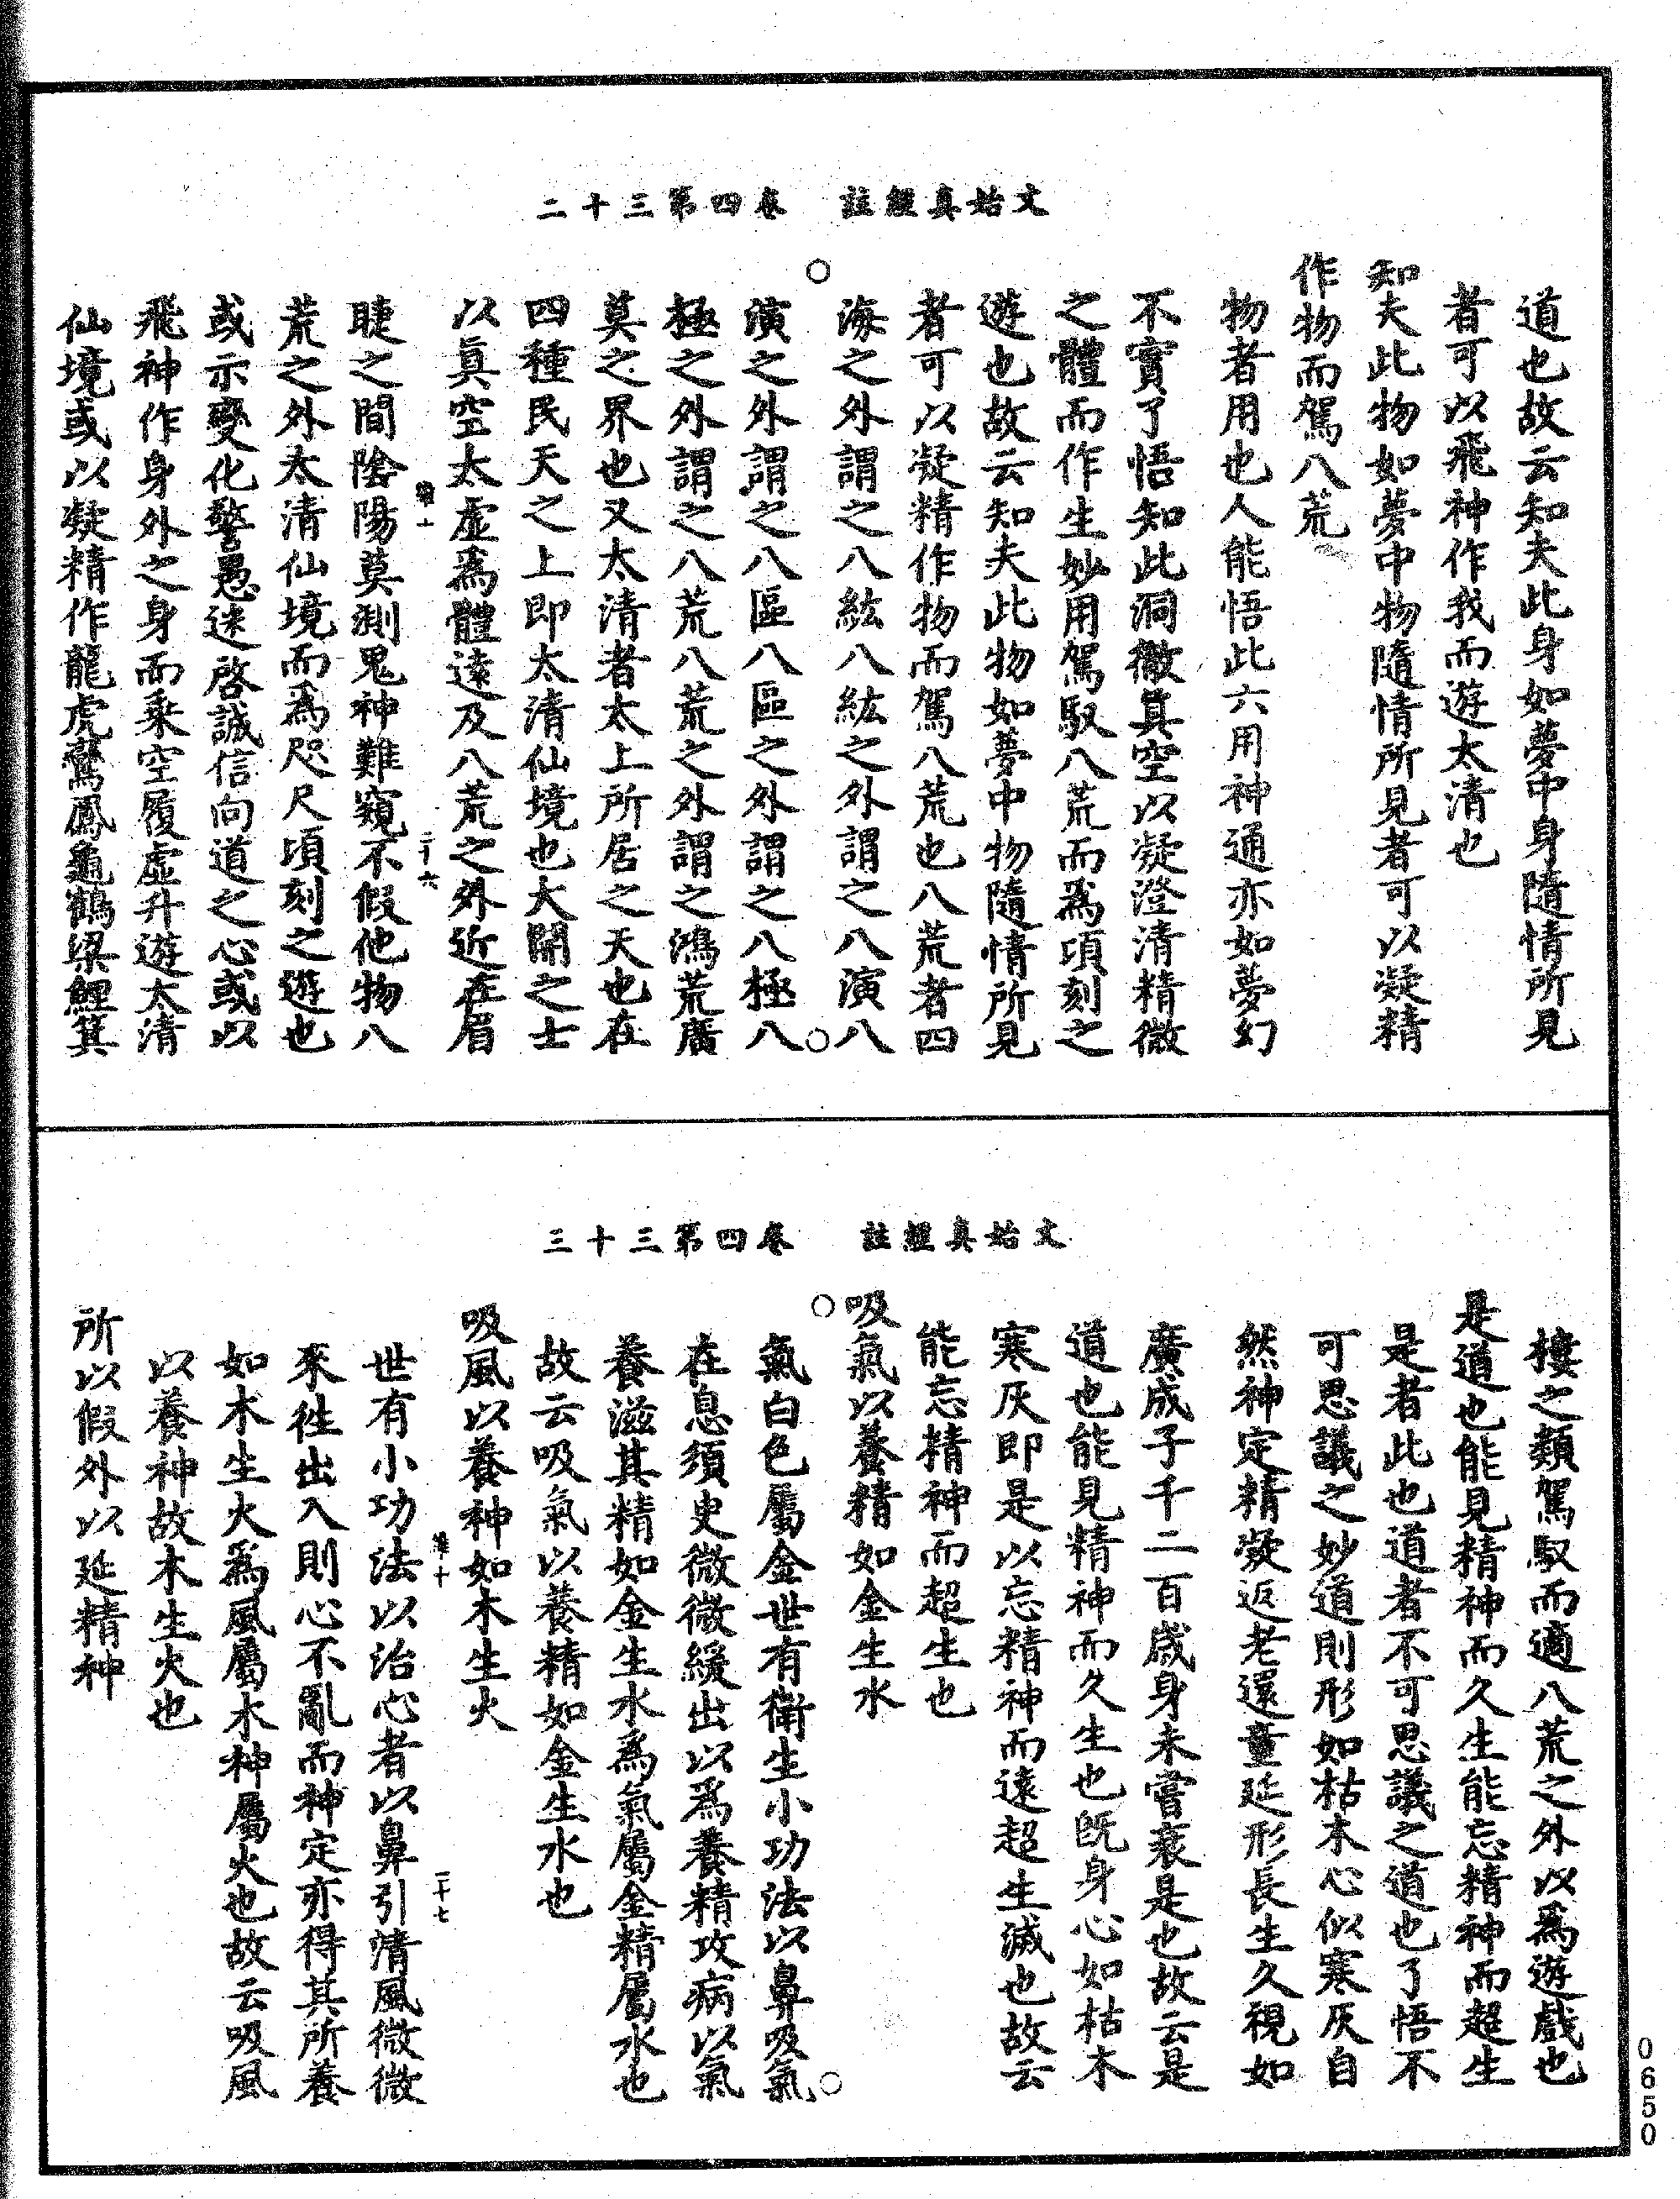 文始真經註　卷四第三十二
道也故云知夫此身如夢中身隨情所見
者可以飛神作我而遊太清也
知夫此物如夢中物隨情所見者可以凝精
作物而駕八荒
物者用也人能悟此六用神通亦如夢幻
不實了悟知此洞微真空以凝澄清精微
之體而作生妙用駕馭八荒而為頃刻之
遊也故云知夫此物如夢中物隨情所見
者可以凝精作物而駕八荒也八荒者四
海之外謂之八紘八紘之外謂之八演八
演之外謂之八區八區之外謂之八極八
極之外謂之八荒八荒之外謂之鴻荒廣
莫之界也又太清者太上所居之天也在
四種民天之上即太清仙境也大開之士
以真空太虛為體遠及八荒之外近在眉
二十六
睫之間陰陽莫測鬼神難窺不假他物八
荒之外太清仙境而為咫尺頃刻之遊也
或示變化警愚迷啓誠信向道之心或以
飛神作身外之身而乘空履虛升遊太清
仙境或以凝精作龍虎鸞鳳龜鶴梁鯉箕
文始真經註　卷四第三十三
棲之類駕馭而適八荒之外以為遊戲也
是道也能見精神而久生能忘精神而超生
是者此也道者不可思議之道也了悟不
可思議之妙道則形如枯木心似寒灰自
然神定精凝返老還童延形長生久視如
廣成子千二百歲身未嘗衰是也故云是
道也能見精神而久生也既身心如枯木
寒灰即是以忘精神而遠超生滅也故云
能忘精神而超生也
吸氣以養精如金生水
氣白色屬金世有衛生小功法以鼻吸氣
在息須臾微微緩出以為養精攻病以氣
養滋其精如金生水為氣屬金精屬水也
故云吸氣以養精如金生水也
吸風以養神如木生火
二十七
世有小功法以治心者以鼻引清風微微
來往出入則心不亂而神定亦得其所養
如木生火為風屬木神屬火也故云吸風
以養神故木生火也
所以假外以延精神
0650